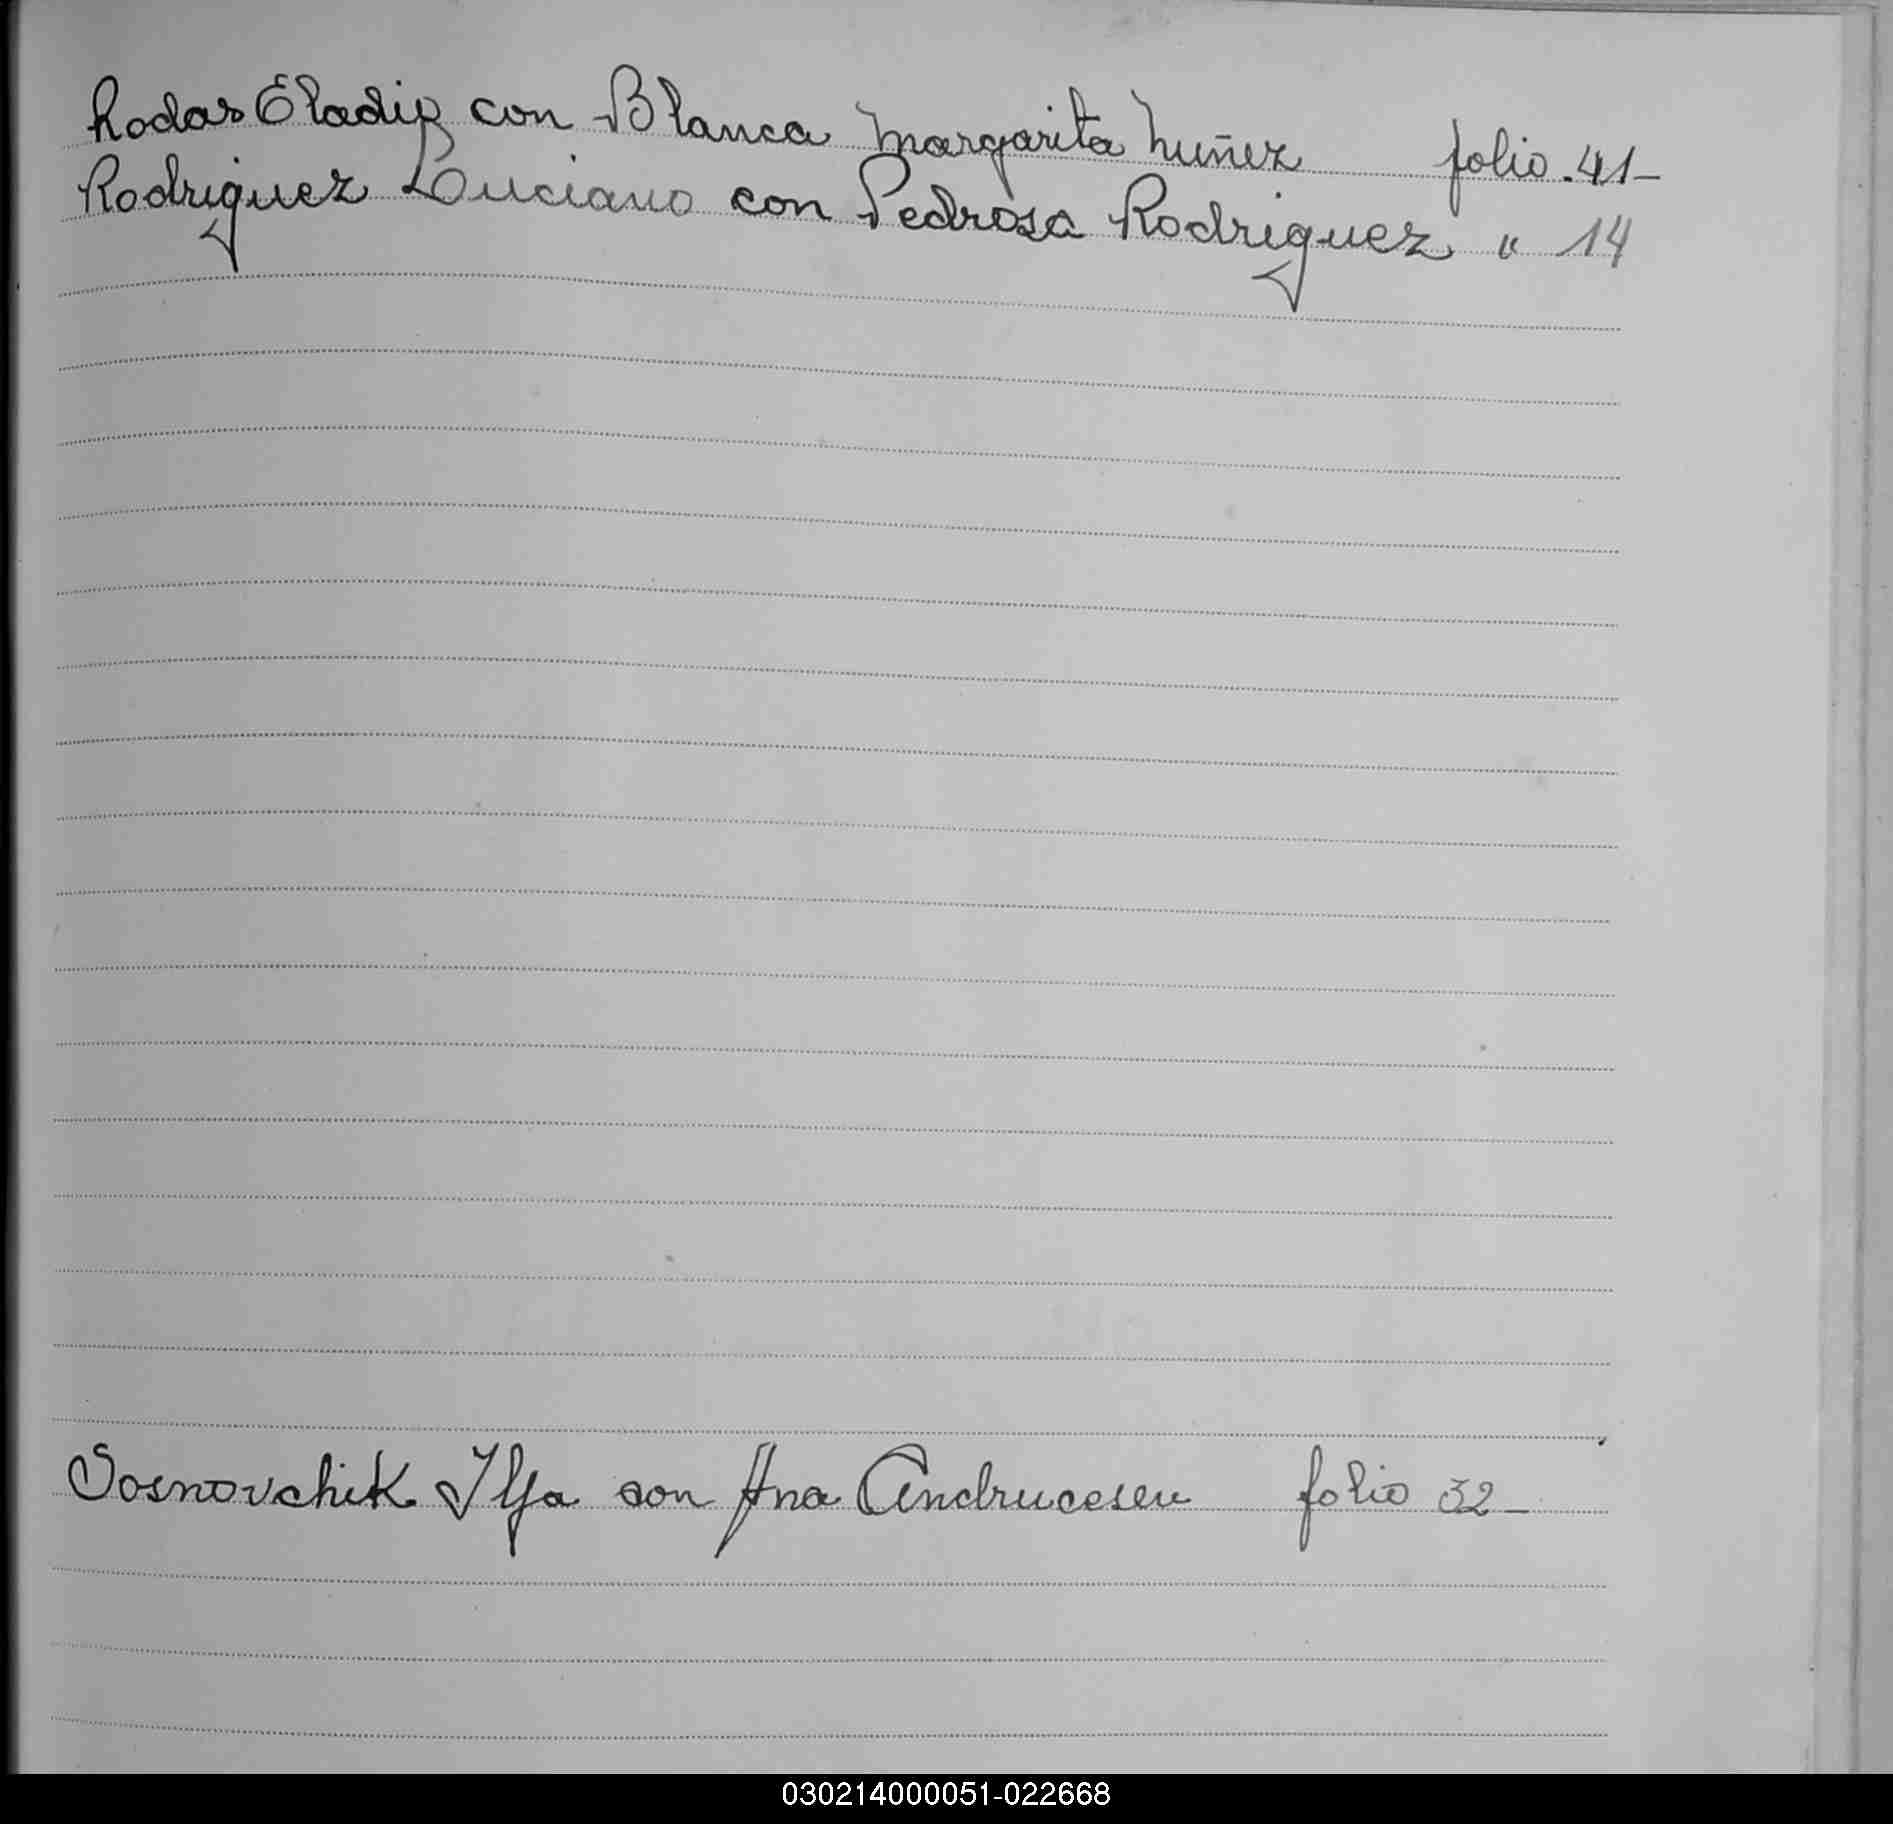 Rodas Eladio con Blanca Margarita Nuñez folio 41-
Rodriguez Luciano con Pedrosa Rodriguez " 14
Sosnovchik Ilja con Ana Andrucesen folio 32-
030214000051-022668